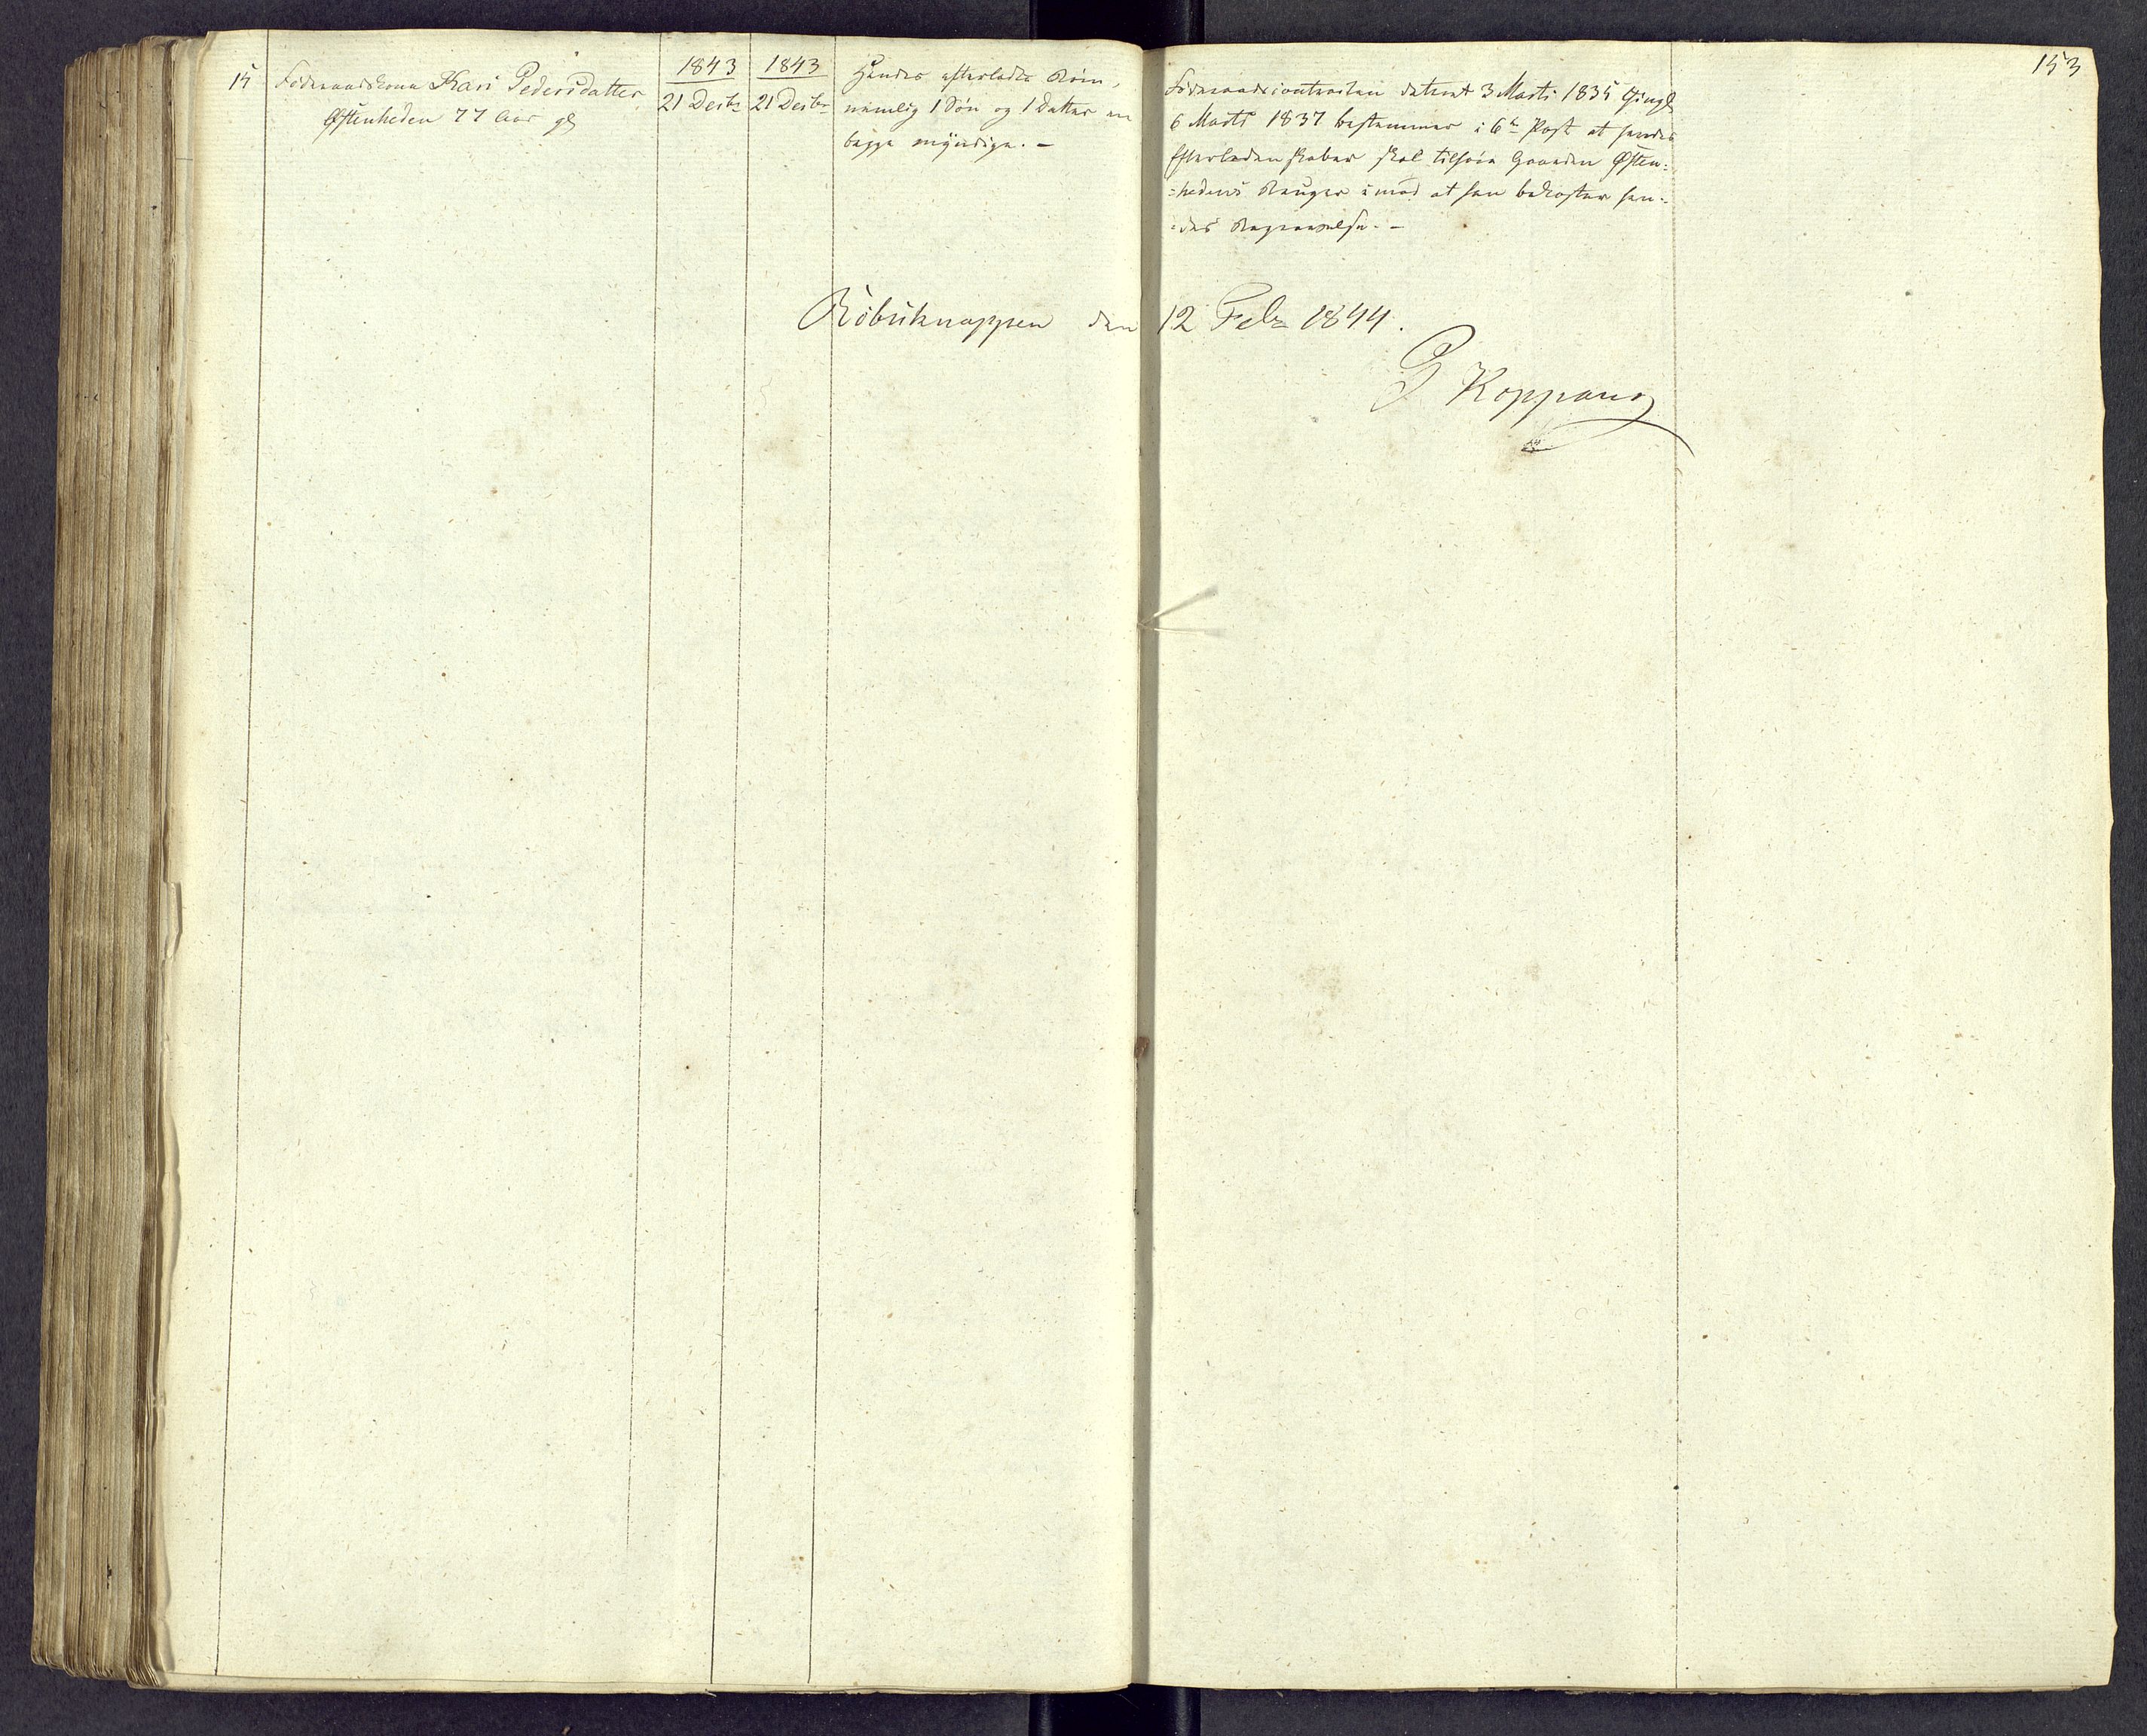 153
15 Föderaadskone Kari Pedersdatter
Östenheden 77 Aar gl
1843
21 Decbr
1843
21 Decbr
Hendes efterladte Börn,
nemlig 1 Sön og 1 Datter ere
begge myndige. -
Föderaadscontracten dateret 3 Marts 1835 thingl
6 Marts 1837 bestemmer i 6te Post at hendes
Efterladenskaber skal tilhöre Gaarden Östen-
=hedens Bruger imod at han bekoster hen-
=des Begravelse. -
Röbuknappen den 12 Febr 1844.
P Koppang